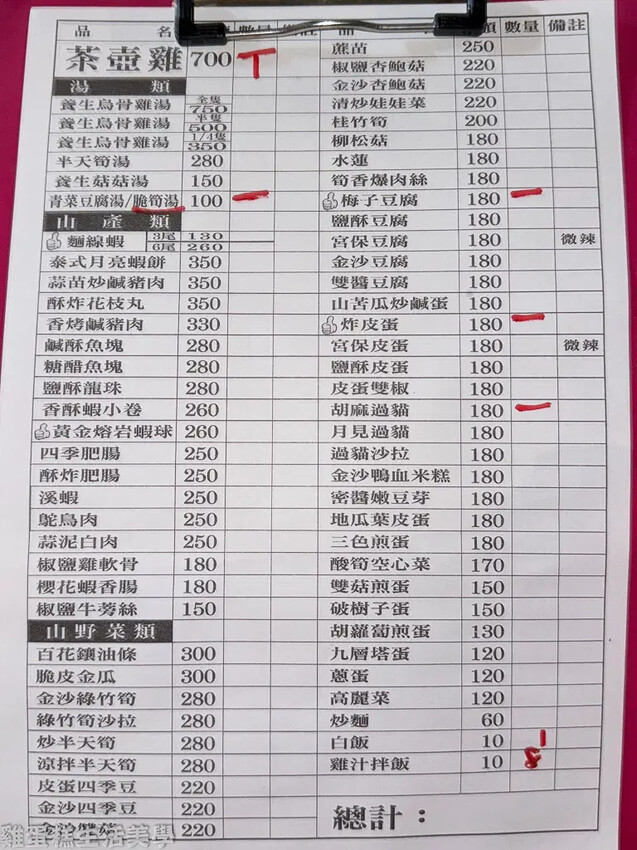 品 名 數量
茶壺雞 700
湯類
養生烏骨雞湯 全隻 750
養生烏骨雞湯 半隻 500
養生烏骨雞湯 1/4隻 350
半天筍湯 280
養生菇菇湯 150
青菜豆腐湯/脆筍湯 100
山產類
麵線蝦 3尾 130
6尾 260
泰式月亮蝦餅 350
蒜苗炒鹹豬肉 350
酥炸花枝丸 350
香烤鹹豬肉 330
鹹酥魚塊 280
糖醋魚塊 280
鹽酥龍珠 280
香酥蝦小卷 260
黃金熔岩蝦球 260
四季肥腸 250
酥炸肥腸 250
溪蝦 250
鴕鳥肉 250
蒜泥白肉 250
椒鹽雞軟骨 180
櫻花蝦香腸 180
椒鹽牛蒡絲 150
山野菜類
百花鑲油條 300
脆皮金瓜 300
金沙綠竹筍 280
綠竹筍沙拉 280
炒半天筍 280
涼拌半天筍 280
皮蛋四季豆 220
金沙四季豆 220
金沙雙菇 220
品 額 數量 備註
蔗苗 250
椒鹽杏鮑菇 220
金沙杏鮑菇 220
清炒娃娃菜 220
桂竹筍 200
柳松菇 180
水蓮 180
筍香爆肉絲 180
梅子豆腐 180
鹽酥豆腐 180
宮保豆腐 180 微辣
金沙豆腐 180
雙醬豆腐 180
山苦瓜炒鹹蛋 180
炸皮蛋 180
宮保皮蛋 180 微辣
鹽酥皮蛋 180
皮蛋雙椒 180
胡麻過貓 180
月見過貓 180
過貓沙拉 180
金沙鴨血米糕 180
密醬嫩豆芽 180
地瓜葉皮蛋 180
三色煎蛋 180
酸筍空心菜 170
雙菇煎蛋 150
破樹子蛋 150
胡蘿蔔煎蛋 130
九層塔蛋 120
蔥蛋 120
高麗菜 120
炒麵 60
白飯 10 1
雞汁拌飯 10 8
總計：
雞蛋糕生活美學